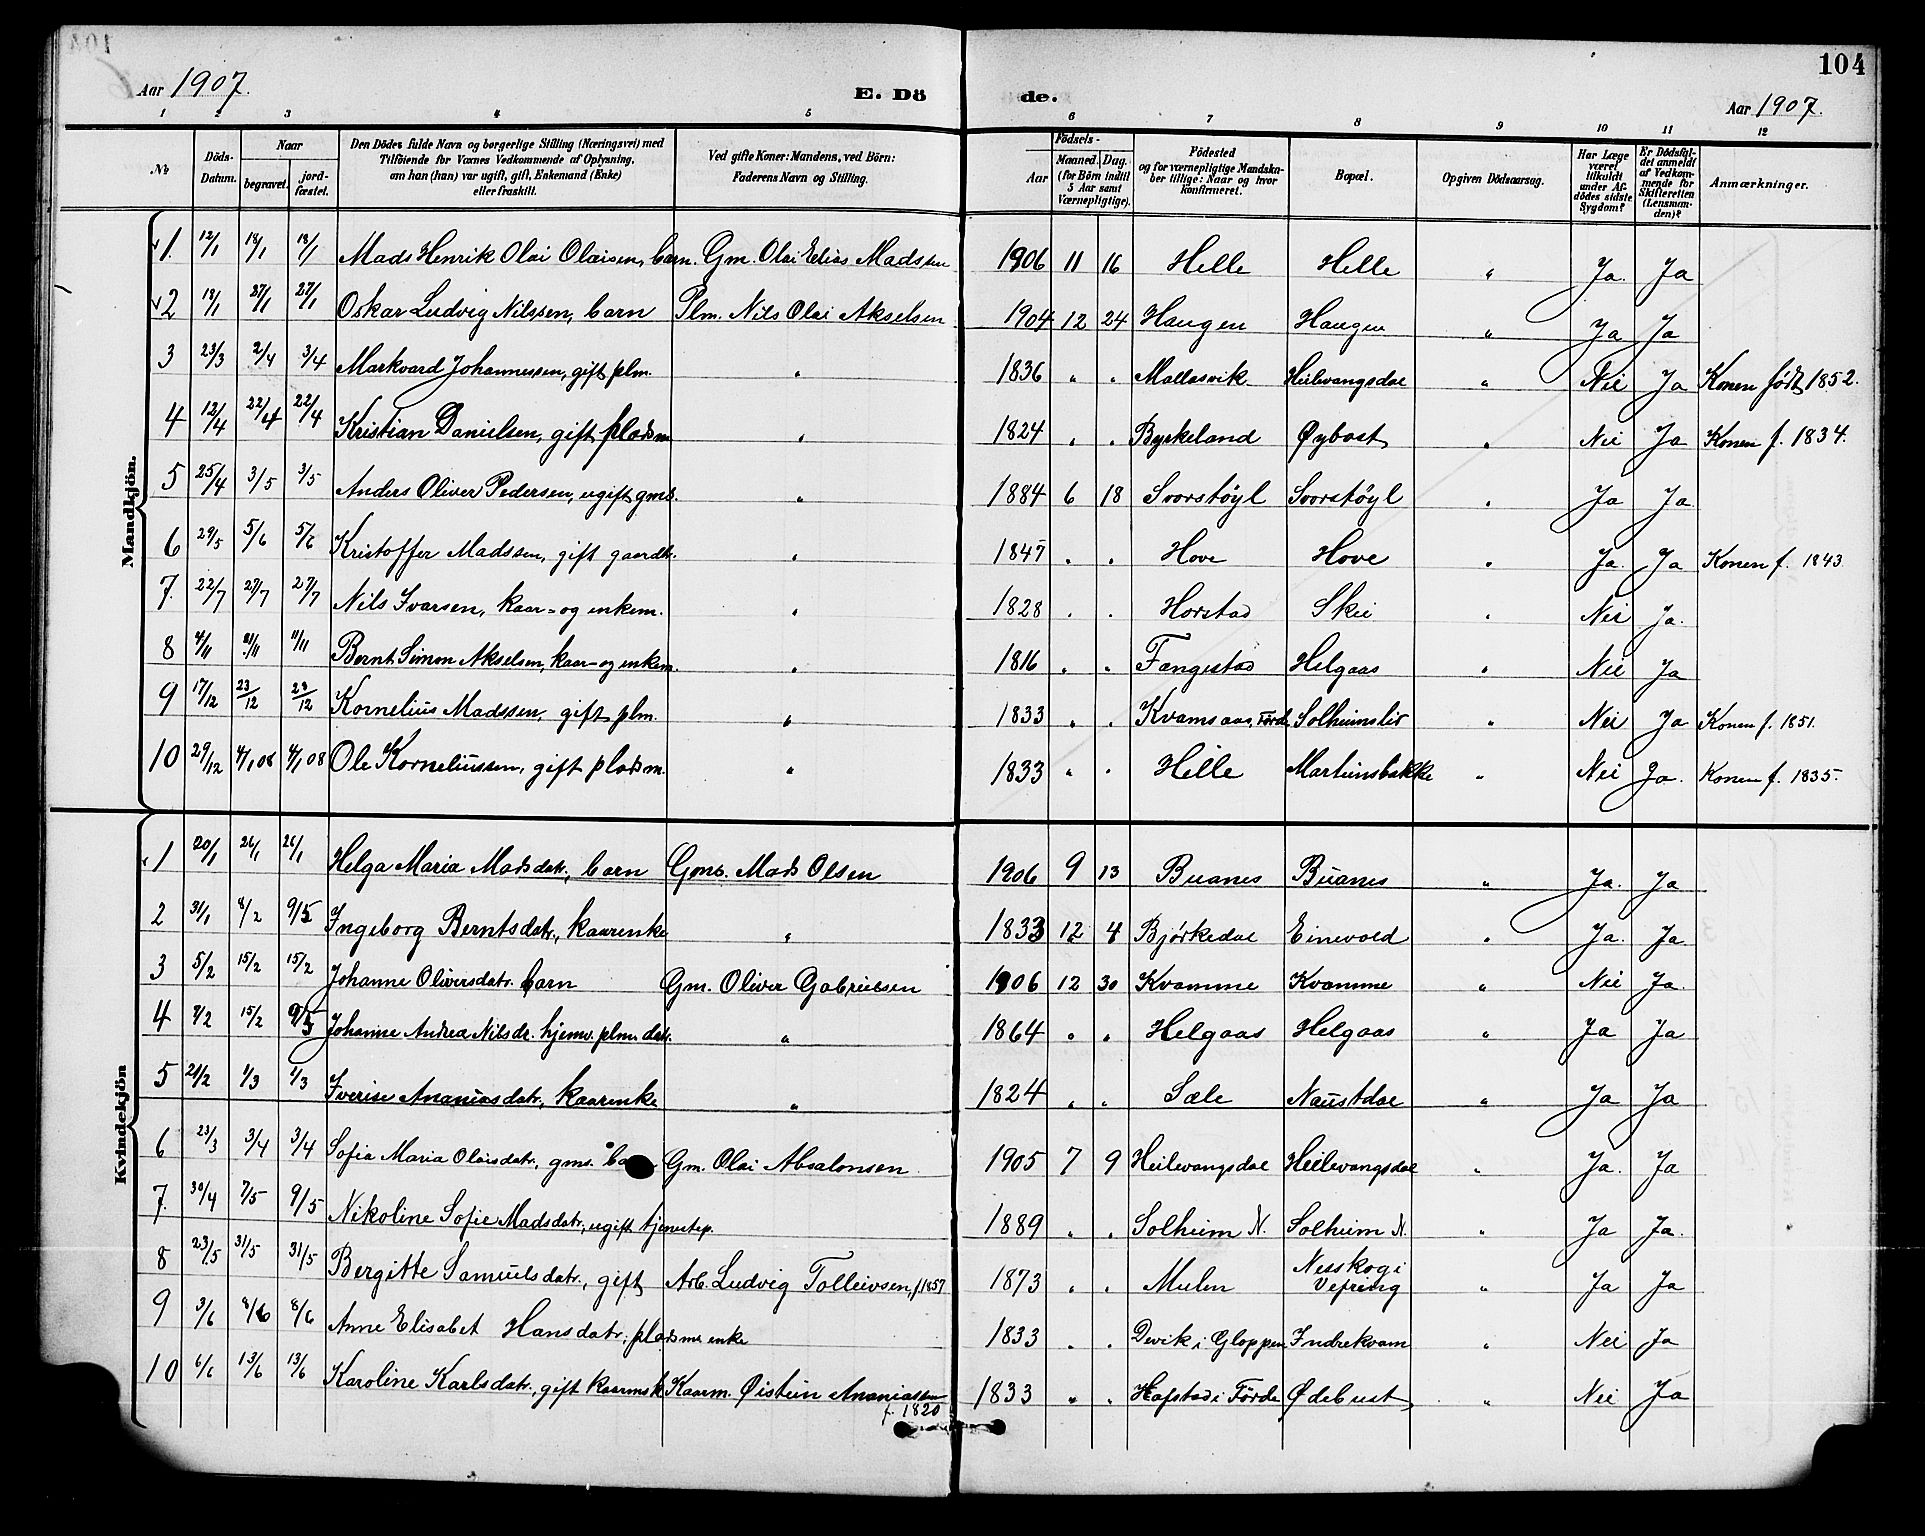 104
Aar 1907.
E. Döde.
Aar 1907.
1 2 3 4 5 6 7 8 9 10 11 12
No
Döds-Datum.
Naar
begravet.
jord-fæstet.
Den Dödes fulde Navn og borgerlige Stilling (Næringsvei) med
Tilföiende for Voxnes Vedkommende af Oplysning,
om han (hun) var ugift, gift, Enkemand (Enke)
eller fraskilt.
Ved gifte Koner: Mandens, ved Börn:
Faderens Navn og Stilling.
Födsels-
Aar
Maaned.
Dag.
(for Börn indtil
5 Aar samt
Værnepligtige).
Födested
og for værnepligtige Mandska-
ber tillige: Naar og hvor
konfirmeret.
Bopæl.
Opgiven Dödsaarsag.
Har Læge
været
tilkaldt
under Af-
dödes sidste
Sygdom?
Er Dödsfal-
det anmeldt
af Vedkom-
mende for
Skifteretten
(Lensman-
den)?
Anmærkninger.
Mandkjön.
1. 12/1 18/1 18/1 Mads Henrik Olai Olaisen, barn. Gm. Olai Elias Madssen 1906 11 16 Helle Helle " Ja. Ja
2 18/1 27/1 27/1 Oskar Ludvig Nilssen, barn Plm. Nils Olai Akselsen 1904 12 24 Haugen Haugen " Ja Ja
3 23/3 2/4 3/4 Markvard Johannessen, gift plm. " 1836 " " Mallasvik Heilevangsdal " Nei Ja Konen født 1852.
4 12/4 22/4 22/4 Kristian Danielsen, gift pladsm " 1824 " " Byrkeland Øybost " Nei Ja Konen f. 1834.
5 25/4 3/5 3/5 Anders Oliver Pedersen, ugift gms. " 1884 6 18 Svorstøyl Svorstøyl " Ja Ja
6 29/5 5/6 5/6 Kristoffer Madssen, gift gaardbr. " 1847 " " Hove Hove " Ja. Ja Konen f. 1843.
7. 22/7 27/7 27/7 Nils Ivarsen, kaar- og enkem. " 1828 " " Horstad Skei " Nei Ja.
8 4/11 11/11 11/11 Bernt Simon Akselsen, kaar- og enkem. " 1816 " " Fangestad Helgaas " Nei Ja
9 17/12 23/12 23/12 Kornelius Madssen, gift plm. " 1833 " " Kvamsaas, Førde Solheimslid " Nei Ja Konen f. 1851.
10 29/12 4/1 08 4/1 08 Ole Korneliussen, gift pladsm. " 1833 " " Helle Martinsbakke " Nei Ja. Konen f. 1835.
Kvindekjön
1 20/1 26/1 26/1 Helga Maria Madsdatr., barn Gms. Mads Olsen 1906 9 13 Buanes Buanes " Ja. Ja
2 31/1 8/2 9/5 Ingeborg Berntsdatr., kaarenke " 1833 12 4 Bjørkedal Einevold " Ja. Ja
3 5/2 15/2 15/2 Johanne Oliversdatr. barn Gm. Oliver Gabrielsen 1906 12 30 Kvamme Kvamme " Nei Ja.
4 8/2 15/2 9/5 Johanne Andrea Nilsdr. hjemv. plm. datr. " 1864 " " Helgaas Helgaas " Ja Ja
5 21/2 1/3 1/3 Iverise Ananiasdatr., kaarenke " 1824 " " Sæle Naustdal " Ja Ja
6 23/3 3/4 3/4 Sofia Maria Olaisdatr., gms. Gm. Olai Absalonsen 1905 7 9 Heilevangsdal Heilevangsdal " Ja. Ja
7. 30/4 7/5 9/5 Nikoline Sofie Madsdatr., ugift tjenestep. 1889 " " Solheim N. Solheim N. " Ja Ja.
8 23/5 31/5 31/5 Bergitte Samuelsdatr., gift Arb. Ludvig Tolleivsen, f. 1857 1873 " " Mulen Nesskog i Vefring " Ja Ja
9 3/6 8/6 8/6 Anne Elisabet Hansdatr., pladsms enke 1833 " " Devik i Gloppen Indrekvam " Nei Ja
10 6/6 13/6 13/6 Karoline Karlsdatr., gift kaarmsk. Kaarm. Øistein Ananiassen f. 1820 1833 " " Hafstad i Førde Ødebust " Nei Ja